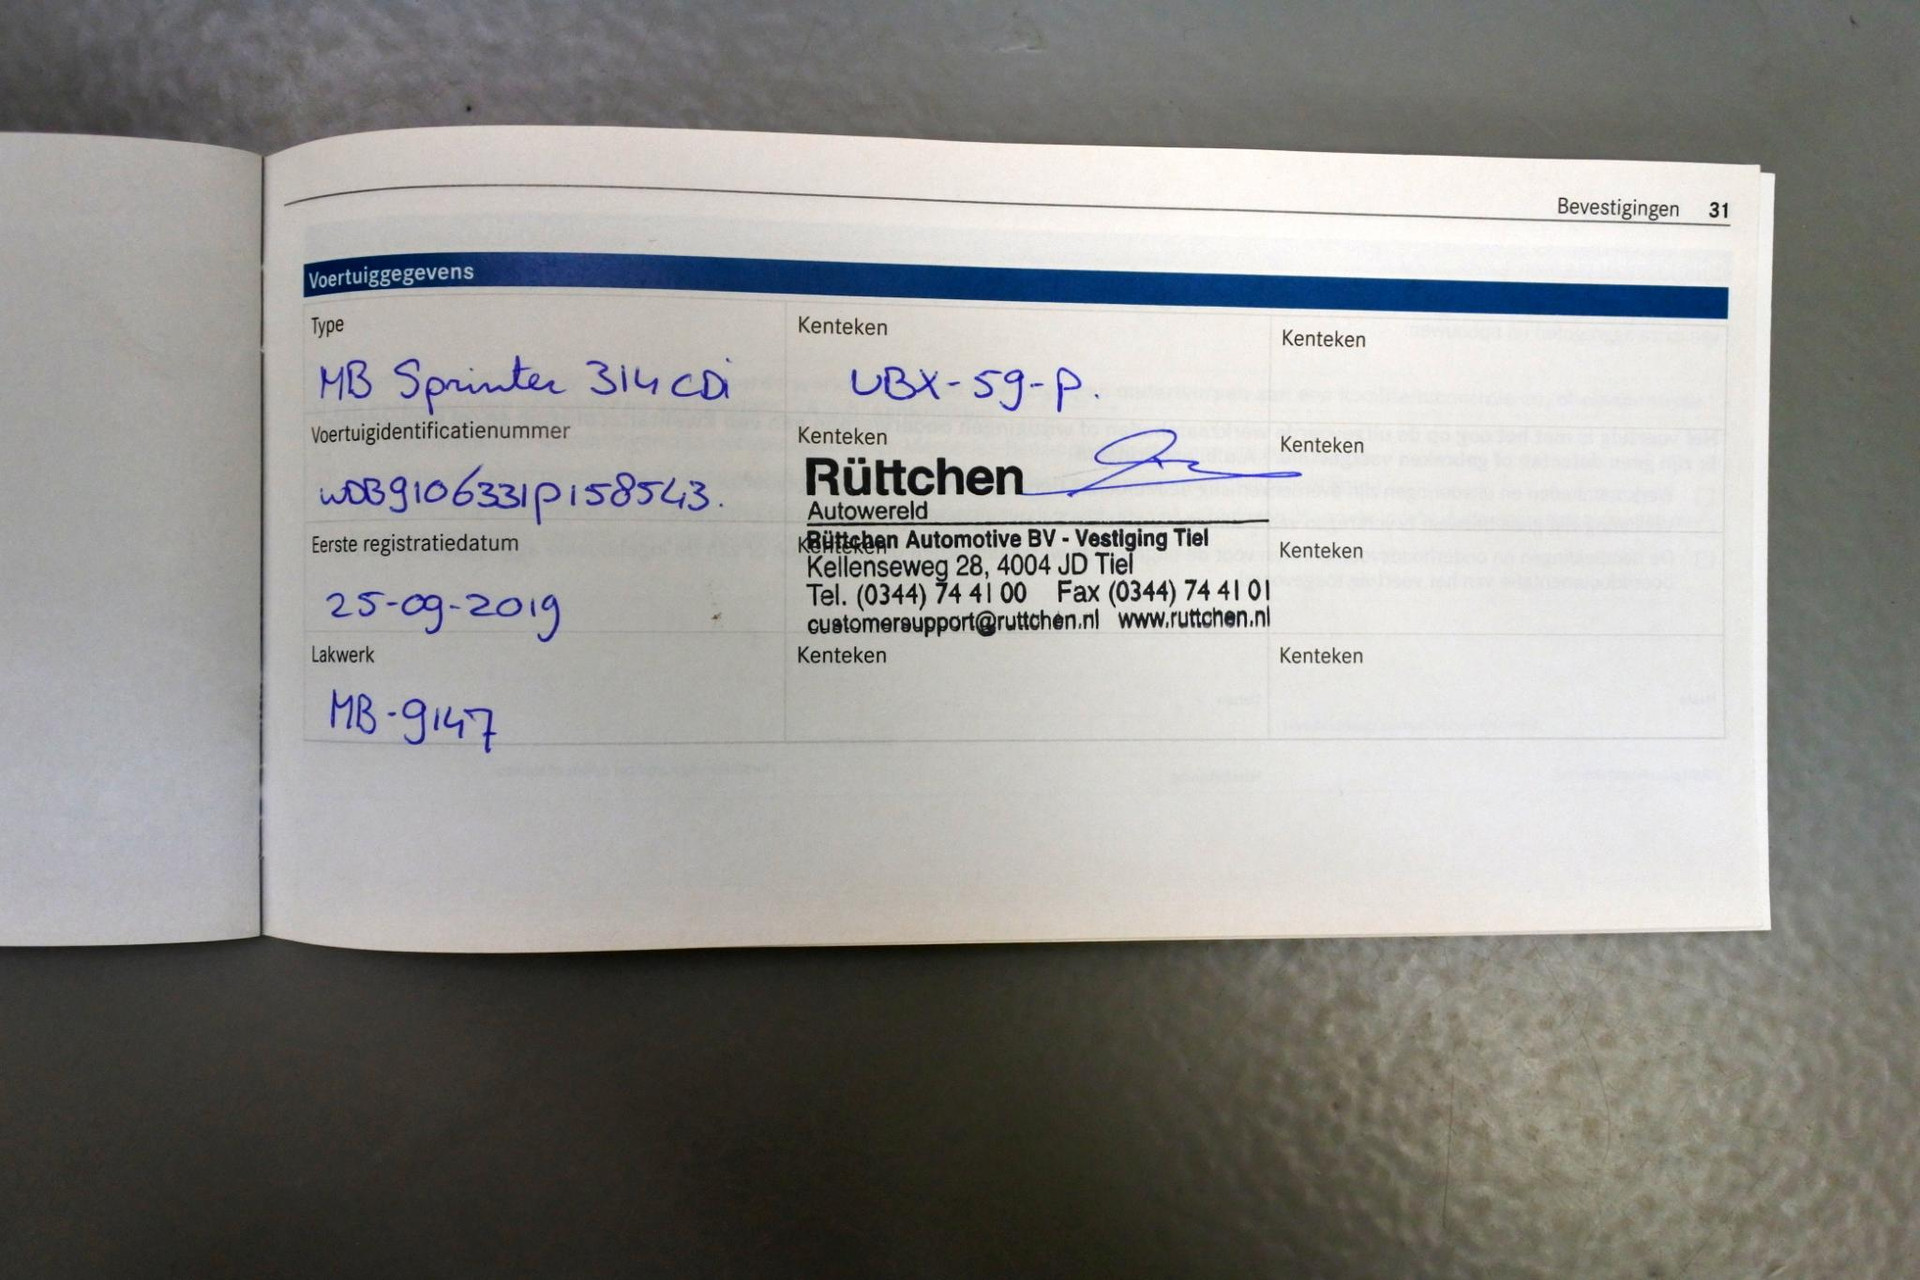 Bevestigingen 31
Voertuiggegevens
Type
MB Sprinter 314 CDi
Kenteken
VBX-59-P.
Kenteken
Voertuigidentificatienummer
WDB9106331P158543.
Kenteken
Kenteken
Rüttchen
Autowereld
Rüttchen Automotive BV - Vestiging Tiel
Kellenseweg 28, 4004 JD Tiel
Tel. (0344) 74 41 00 Fax (0344) 74 41 01
customersupport@ruttchen.nl www.ruttchen.nl
Eerste registratiedatum
25-09-2019
Kenteken
Kenteken
Lakwerk
MB-9147
Kenteken
Kenteken